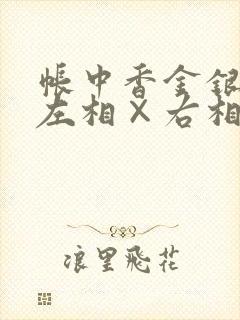 帳中香金銀
左相×右相
浪里飛花